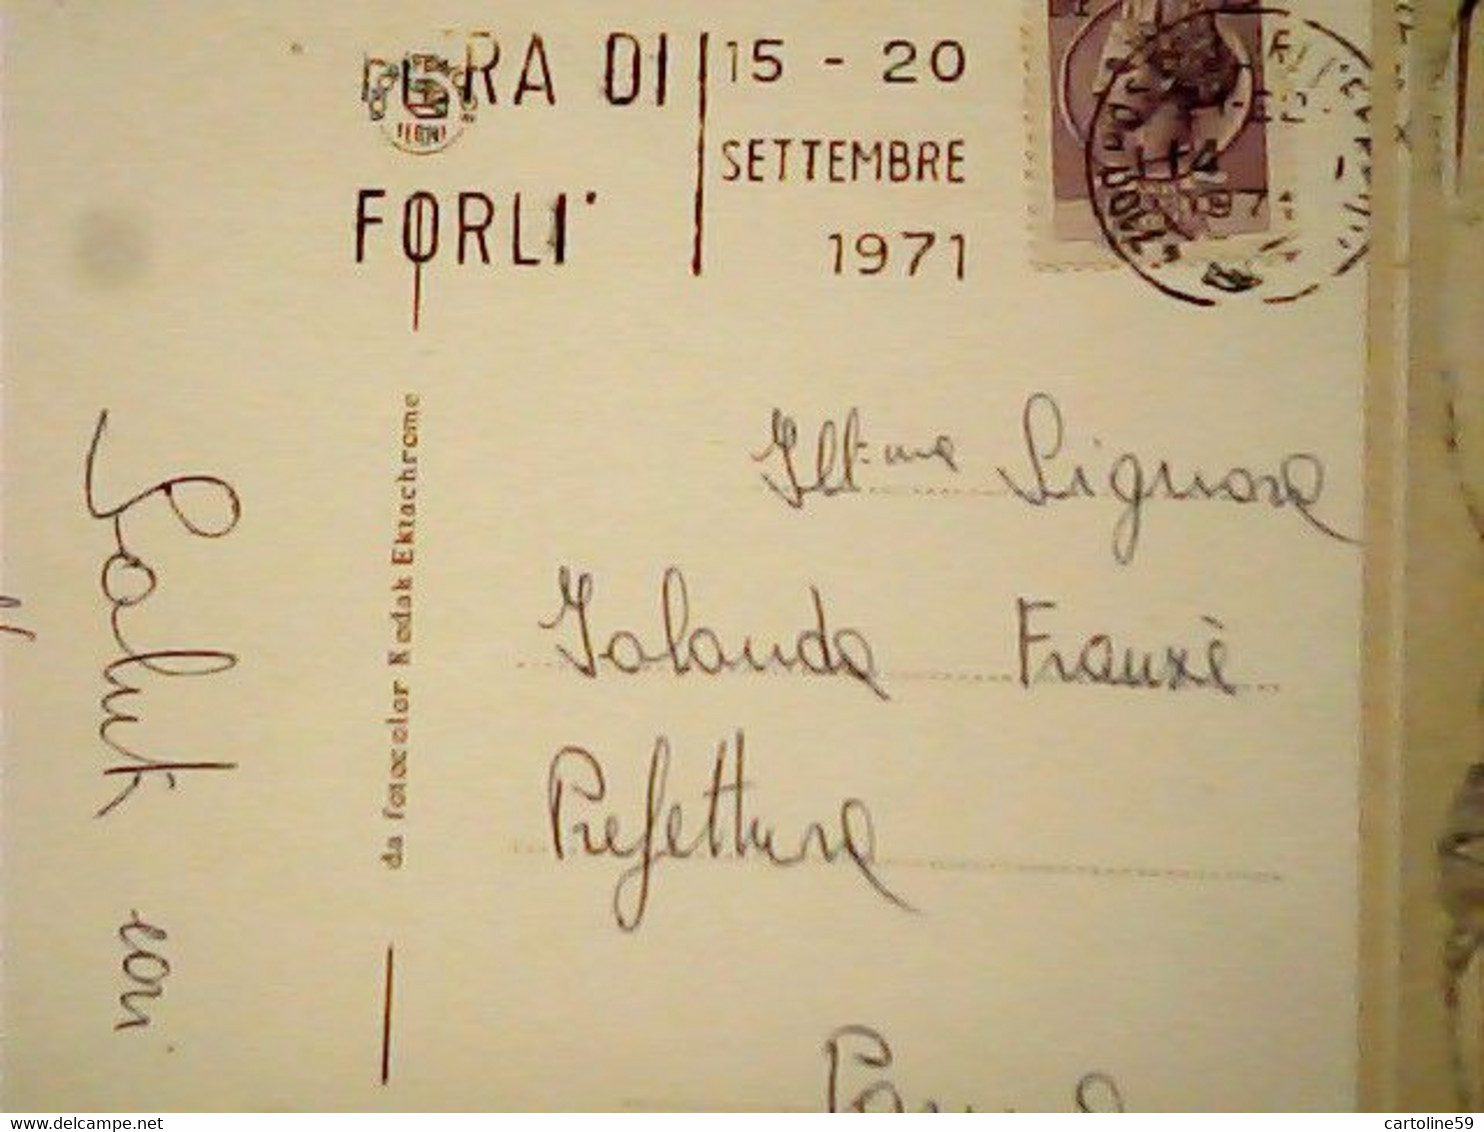 RA DI
FORLI'
15 - 20
SETTEMBRE
1971
47100
da fotocolor Kodak Ektachrome
Saluti cari
Ill.ma Signora
Iolanda Franzè
Prefettura
cartoline59